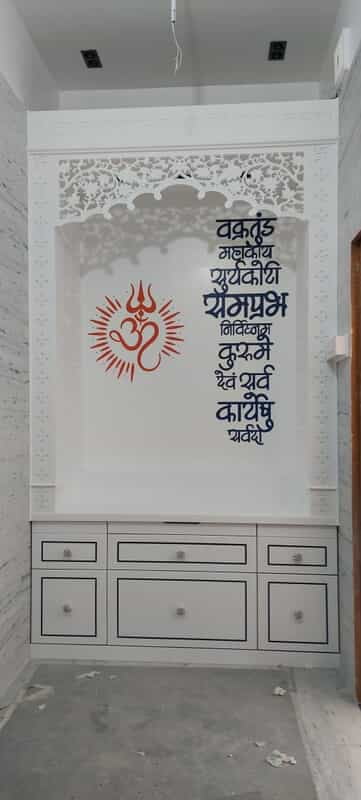 ॐ
वक्रतुंड
महाकाय
सुर्यकोटी
समप्रभ
निर्विघ्नम
कुरुमे
देवं सर्व
कार्येषु
सर्वदा